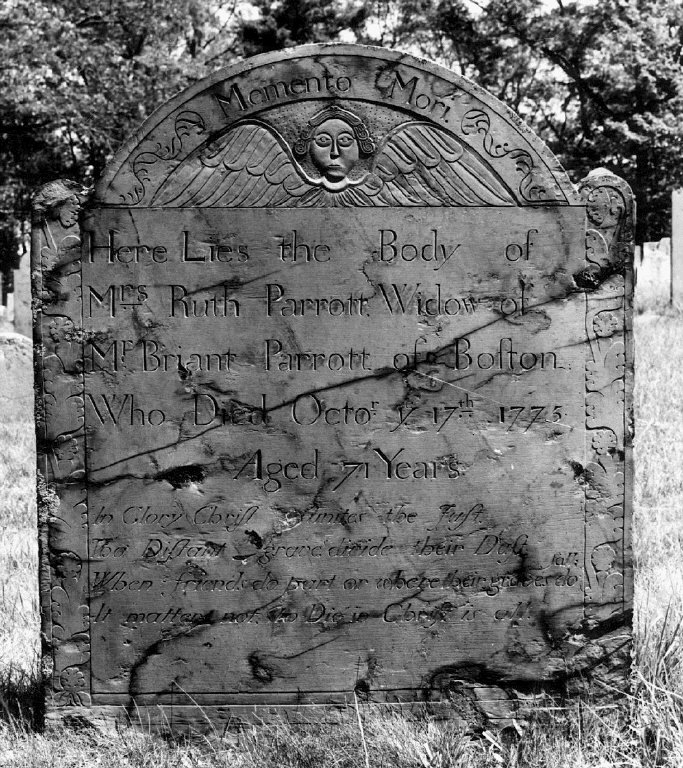 Memento Mori.
Here Lies the Body of
Mrs Ruth Parrott Widow of
Mr Briant Parrott of Boſton
Who Died Octor y 17th 1775
Aged 71 Years
In Glory Chriſt unites the Juſt.
Tho Diſtant graves divide their Duſt
fall;
When friends do part or where their graves do
It matters not, to Die in Chriſt is all.